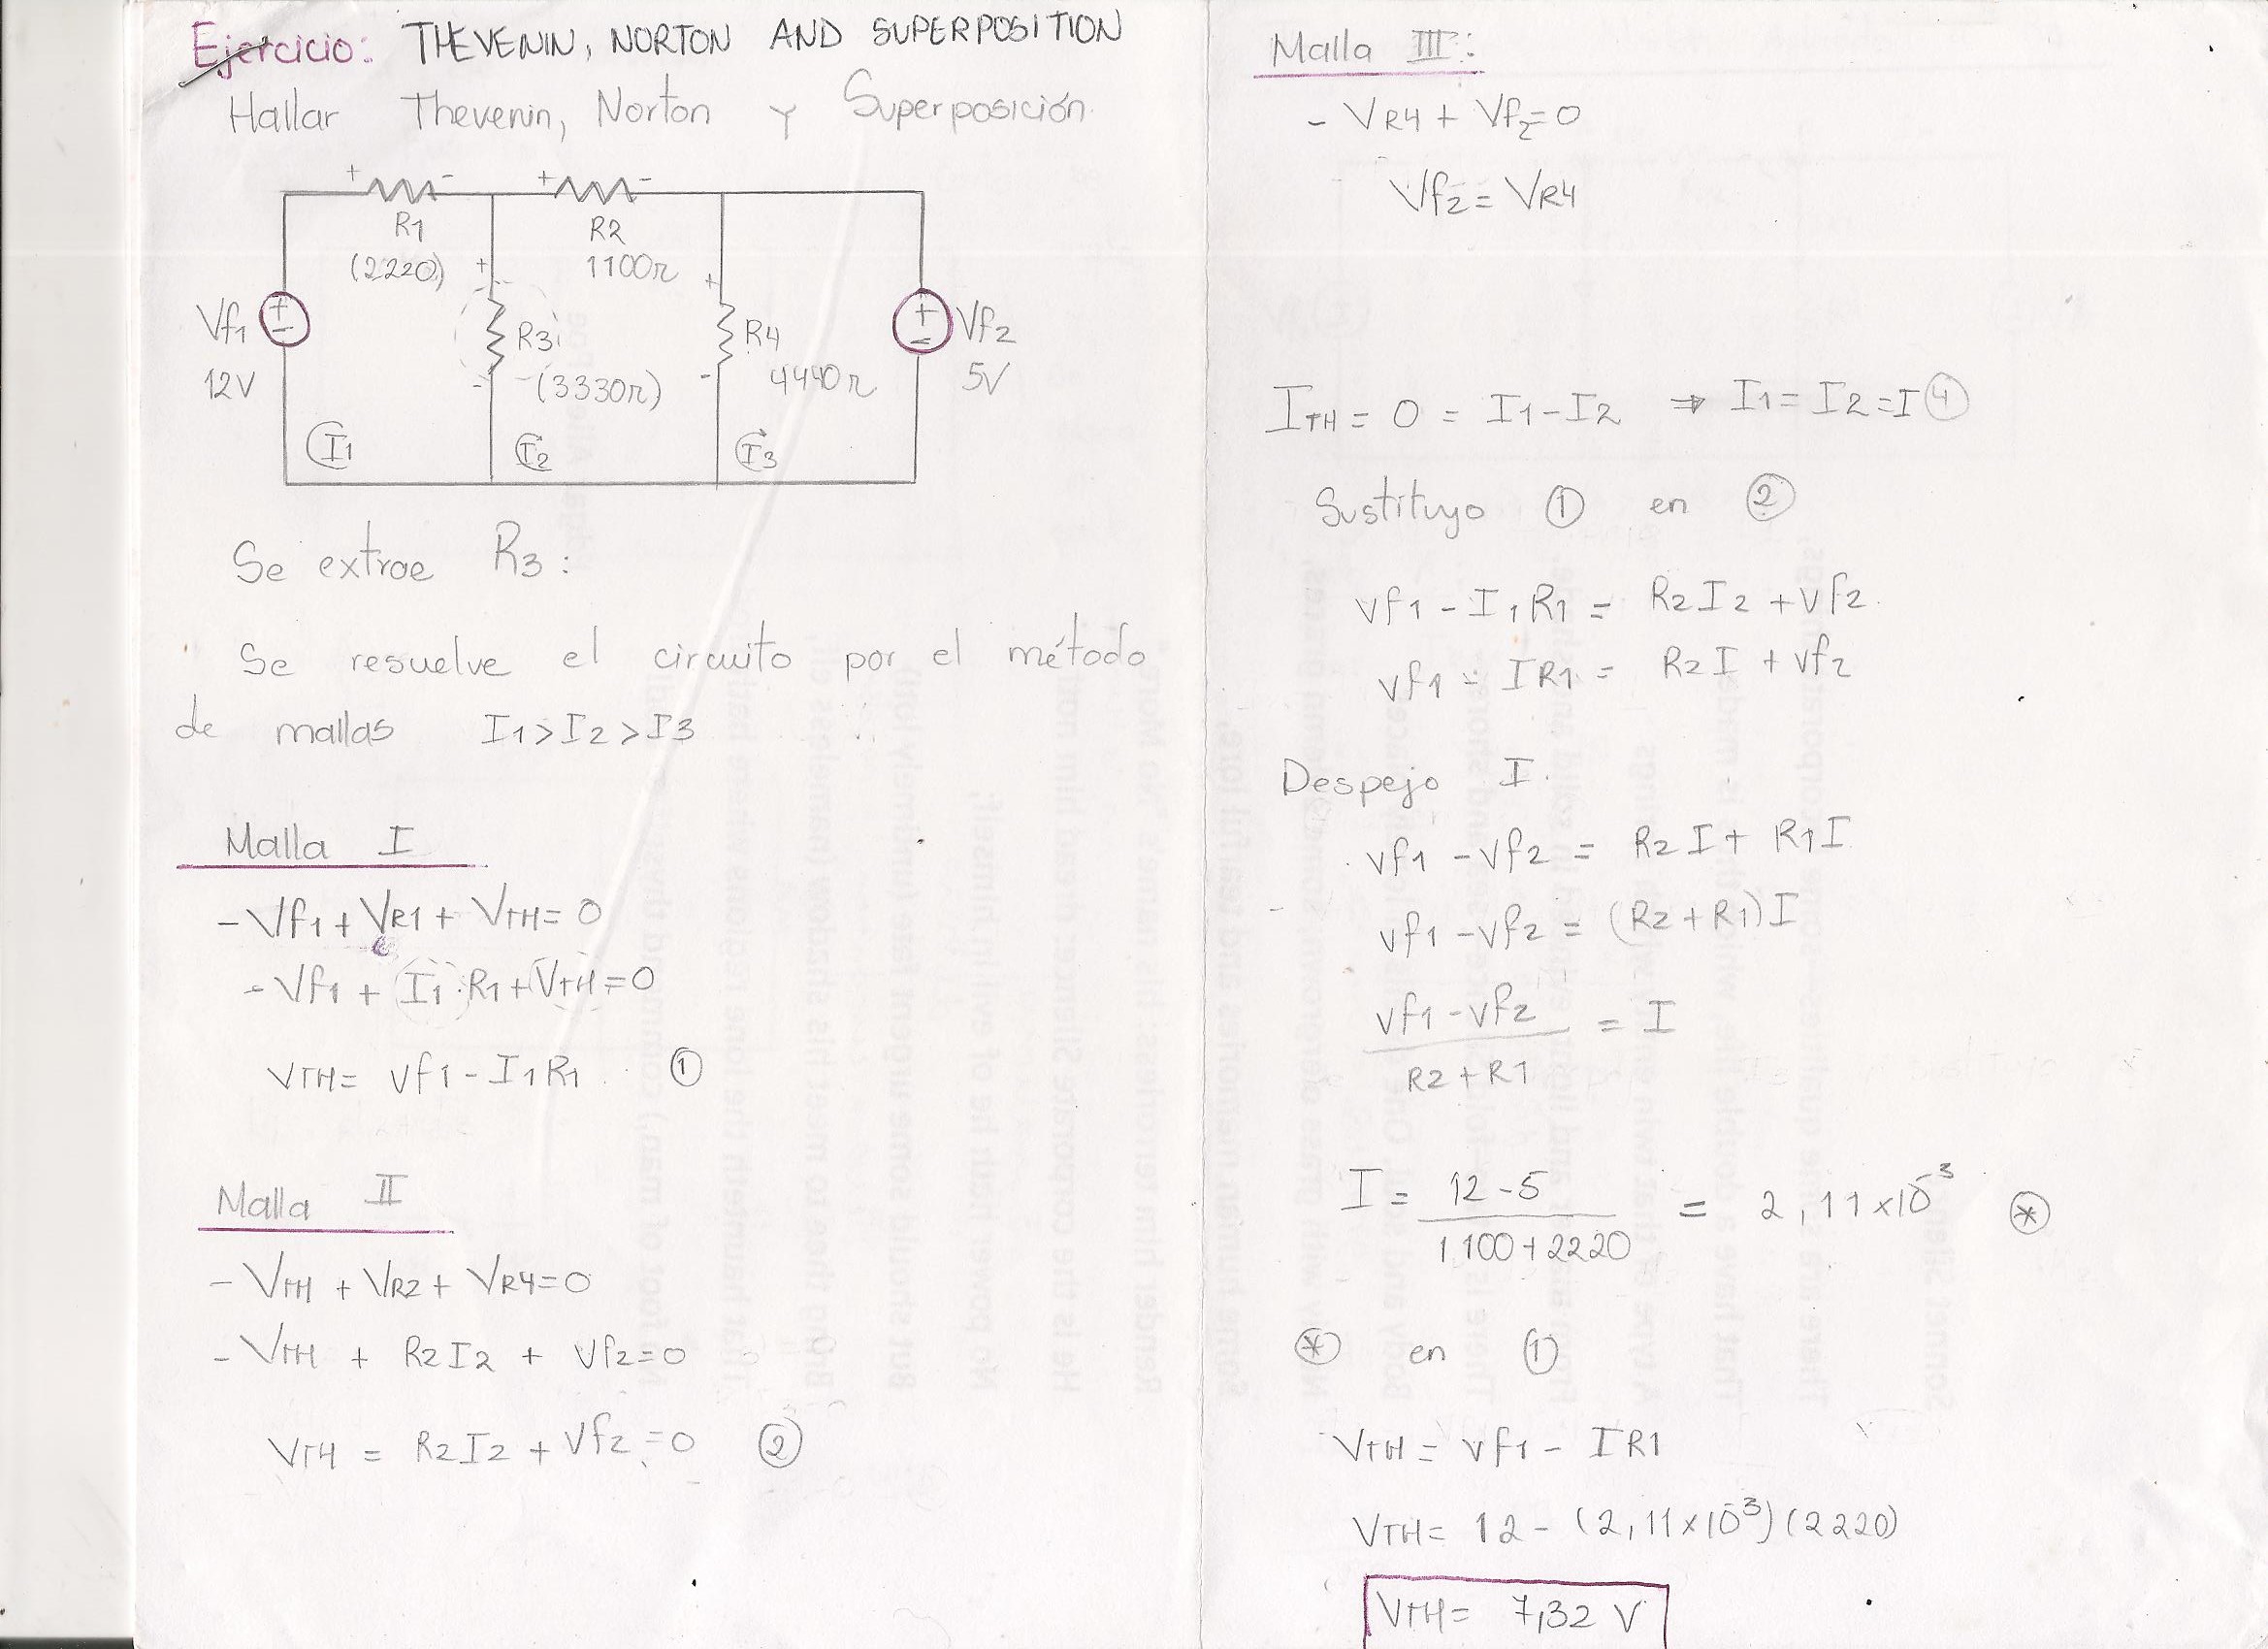 Ejercicio: THEVENIN, NORTON AND SUPERPOSITION
Hallar Thevenin, Norton y Superposición.
+ - + -
R1 R2
(2220) + 1100Ω +
Vf1 + - R3 R4 + - Vf2
12V - (3330Ω) - 4440Ω 5V
I1 I2 I3
Se extrae R3:
Se resuelve el circuito por el método
de mallas I1>I2>I3
Malla I
-Vf1+VR1+VTH=0
-Vf1+I1·R1+VTH=0
VTH= Vf1-I1R1 ①
Malla II
-VTH+VR2+VR4=0
-VTH + R2I2 + Vf2=0
VTH = R2I2+Vf2=0 ②
Malla III:
-VR4+Vf2=0
Vf2=VR4
ITH= 0 = I1-I2 ⇒ I1=I2=I ④
Sustituyo ① en ②
Vf1-I1R1= R2I2+Vf2
Vf1-IR1= R2I+Vf2
Despejo I.
Vf1-Vf2 = R2I+R1I
Vf1-Vf2= (R2+R1)I
Vf1-Vf2 = I
R2+R1
I= 12-5 = 2,11x10⁻³ ⊛
1100+2220
⊛ en ①
VTH= Vf1- IR1
VTH= 12-(2,11x10⁻³)(2220)
VTH= 7,32 V